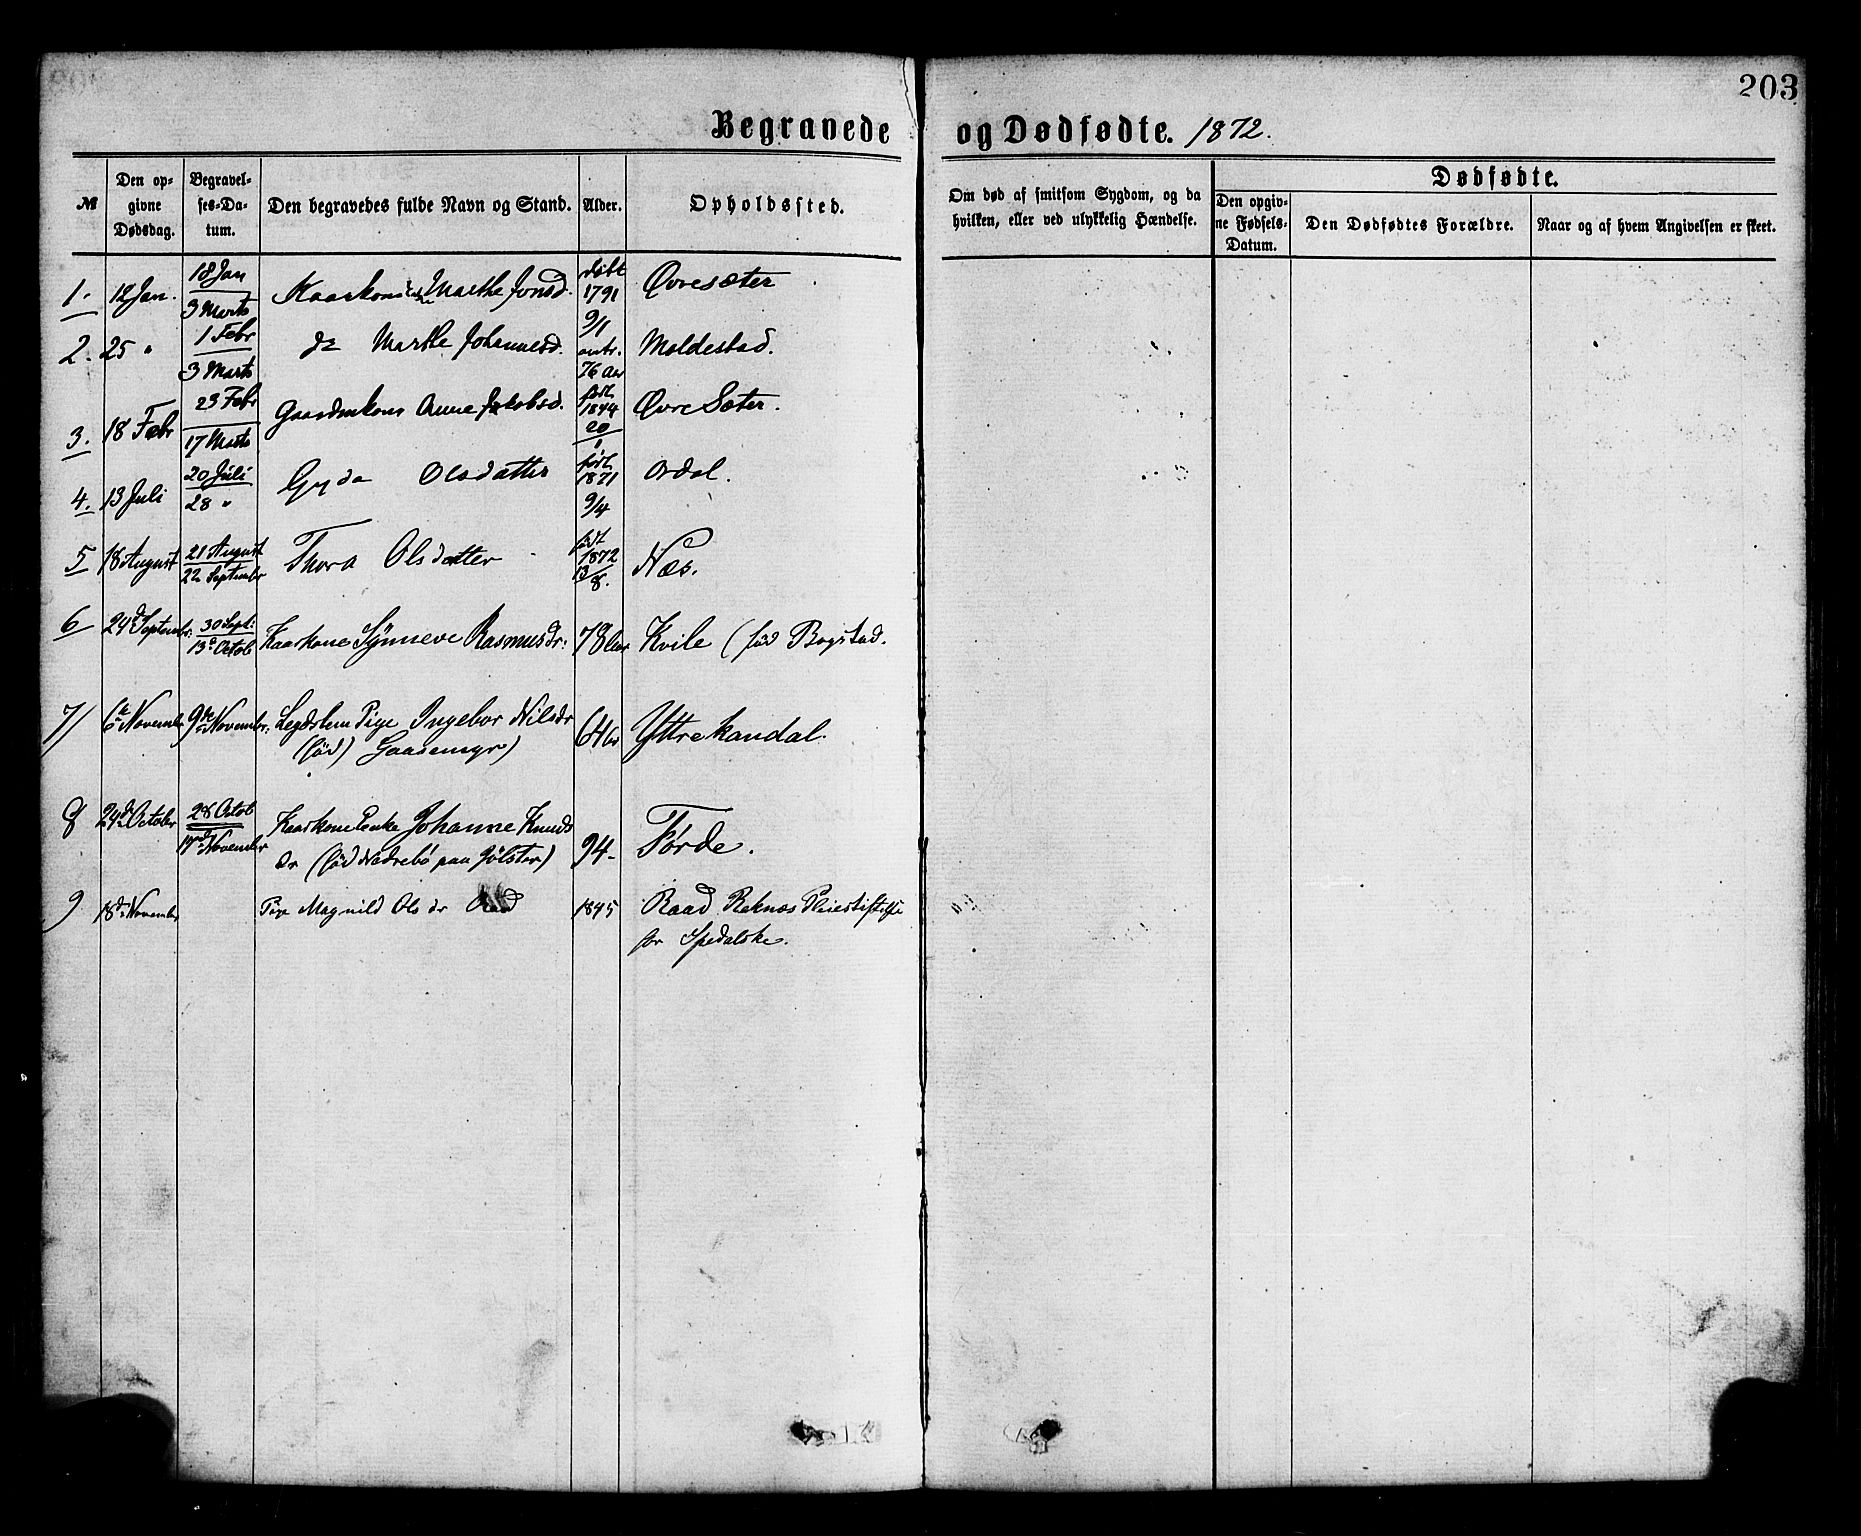 203
Begravede og Dødfødte. 1872.
№
Den op-
givne
Dødsdag.
Begravel-
ses-Da-
tum.
Den begravedes fulde Navn og Stand.
Alder.
Opholdssted.
Om død af smitsom Sygdom, og da
hvilken, eller ved ulykkelig Hændelse.
Dødfødte.
Den opgiv-
ne Fødsels-
Datum.
Den Dødfødtes Forældre.
Naar og af hvem Angivelsen er skeet.
1. 12 Jan. 18 Jan
3 Marts
Marthe Jonsd. døbt
1791
9/1
Øvresæter
2. 25 " 1 Febr
3 Marts
do Marthe Johannesd. antr.
76 Aar
Moldestad.
3. 18 Febr 23 Febr
17 Marts
Gaardmkone Anne Jakobsd. født
1844
20/1
Øvre Sæter.
4. 13 Juli 20 Juli
28 "
Gyda Olsdatter født
1871
9/4
Ordal.
5 18 August 21 August
22 September
Thora Olsdatter født
1872
13/8.
Næs.
6 24d September: 30 Sept:
13d Octob
Kaarkone Synneve Rasmusdr: 78 Aar Kvile (fød Bogstad.
7/ 6te November 9de November: Lægdslem Pige Ingebor Nilsdr
(fød) Gaasemyr)
64 Aar Yttrekandal.
8 24d October 28 Octob
17de November
Kaarkone Enke Johanne Knuds
dr (fød Nedrebö paa Jölster) 94- Förde.
9 18de November Pige Magnild Ols dr 1845 Raad Reknæs Pleiestiftelse
for Spedalske.